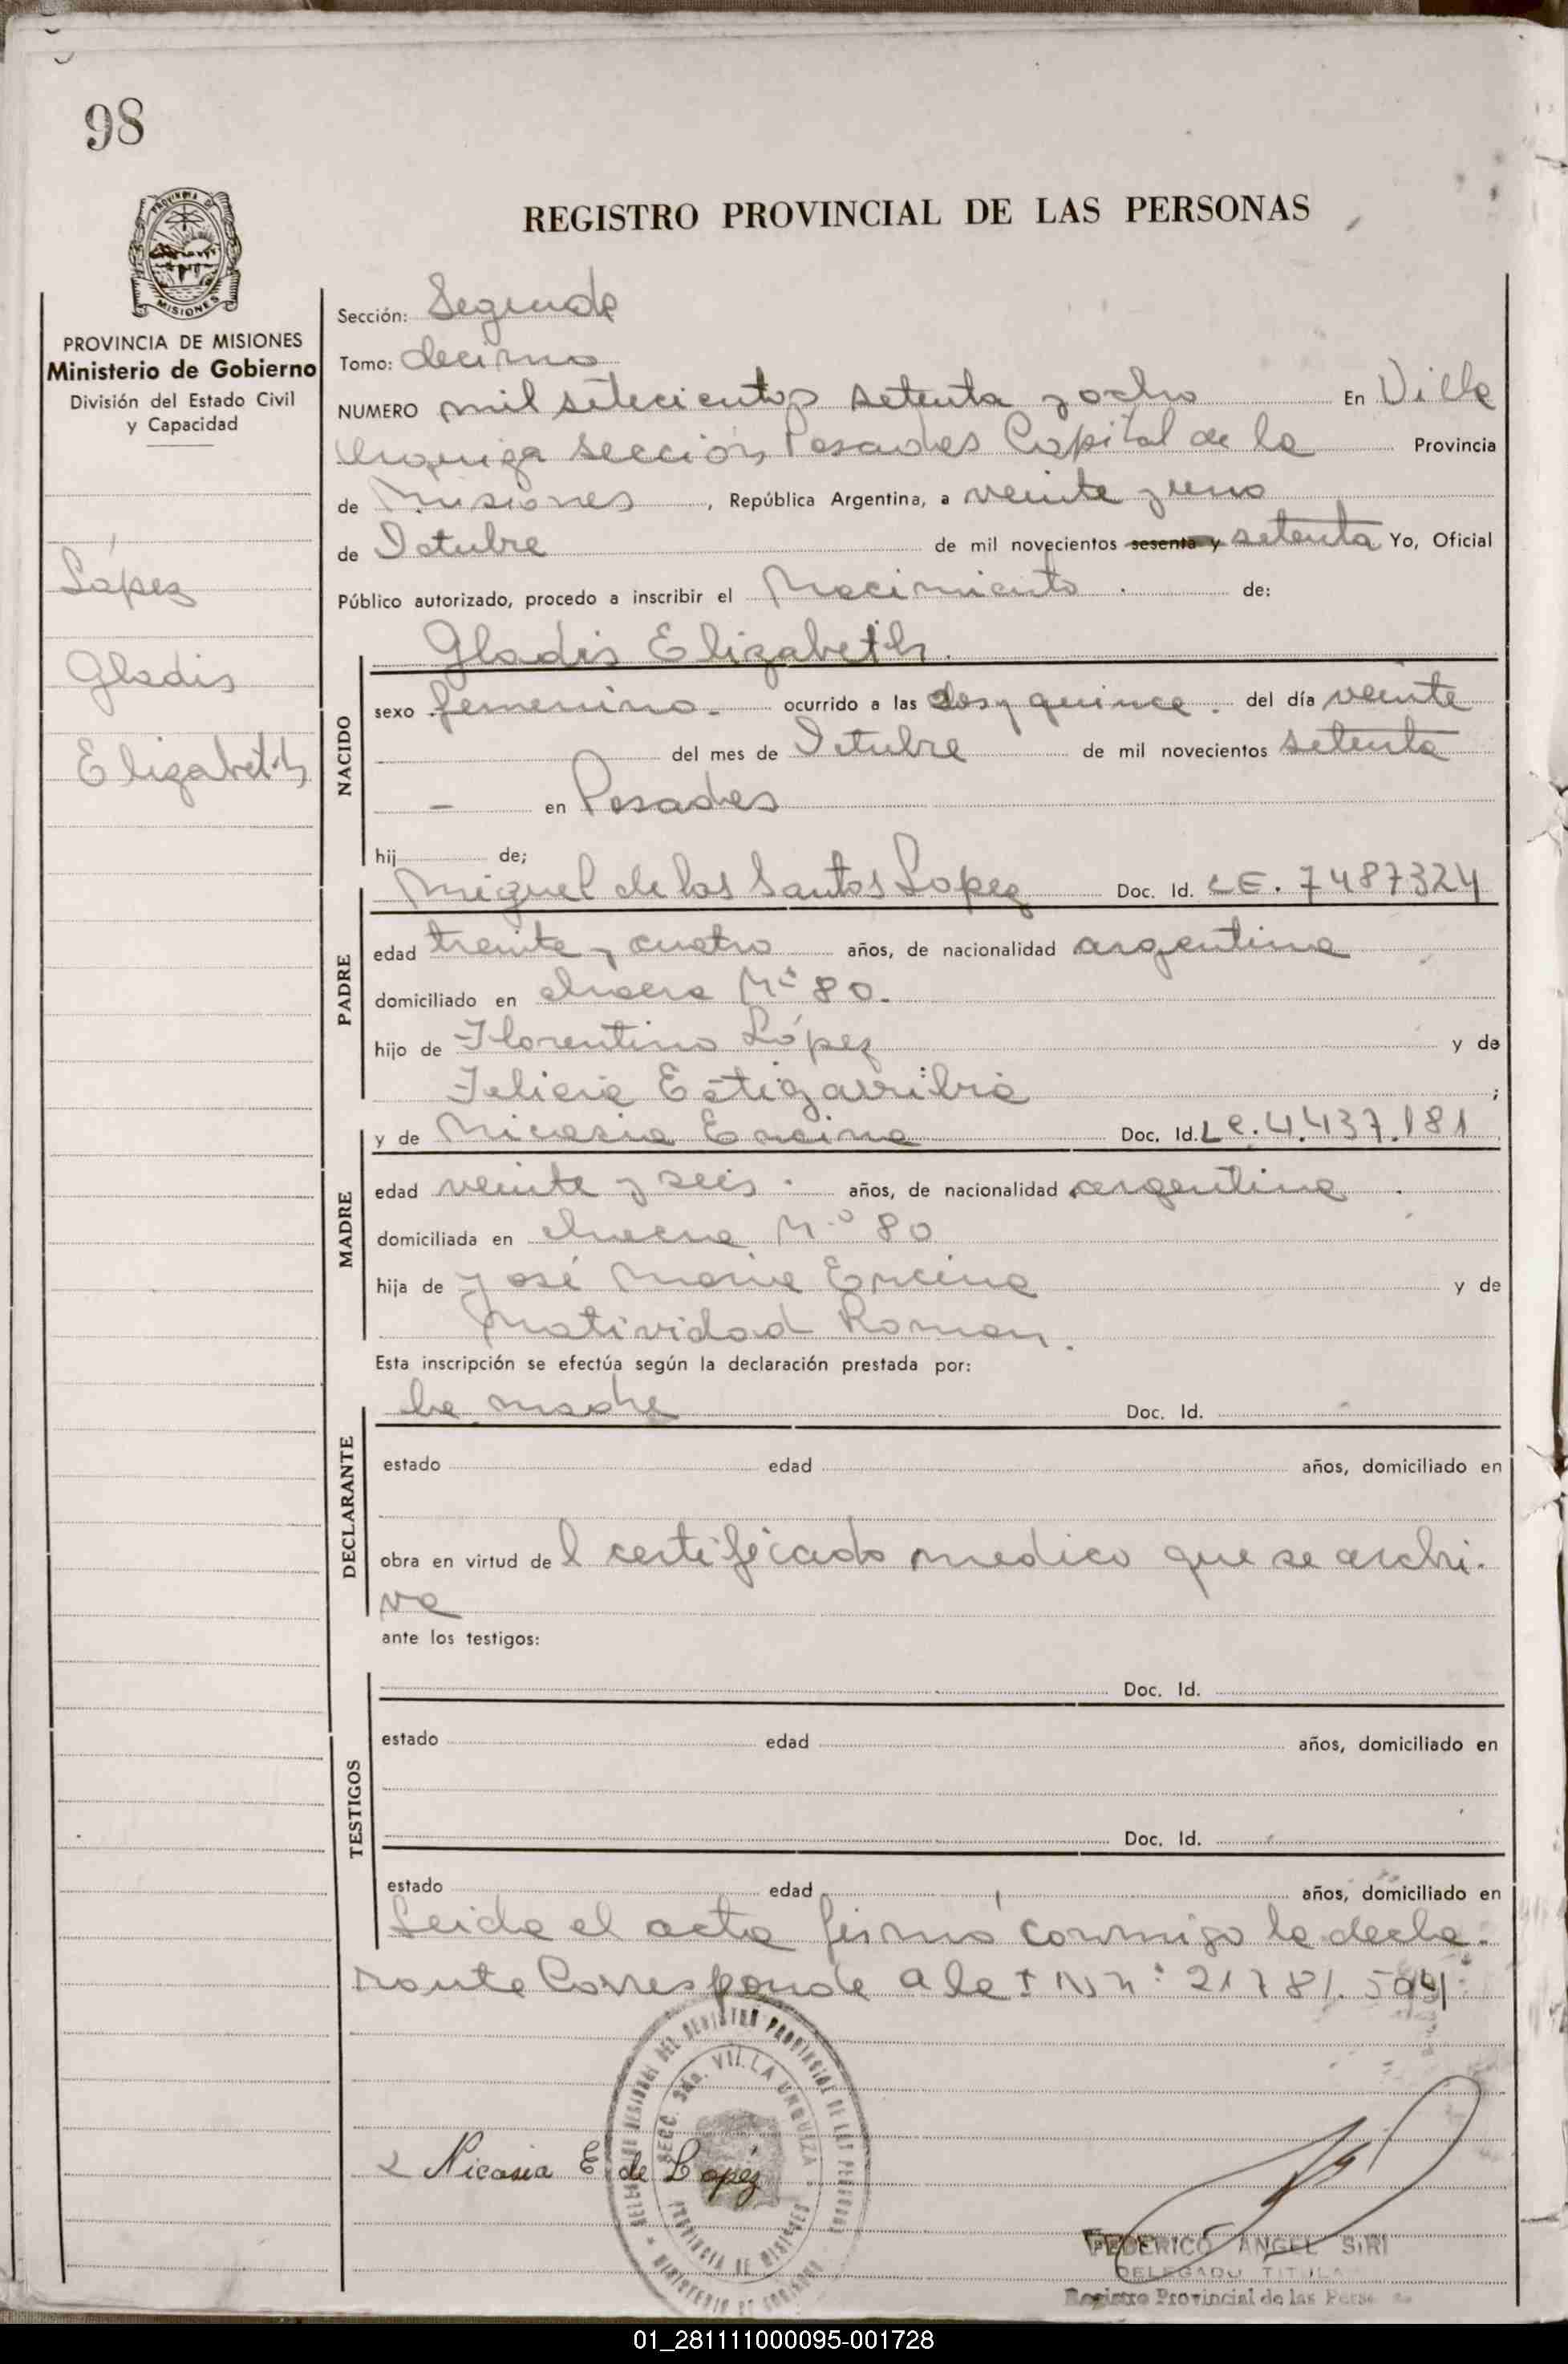 98
REGISTRO PROVINCIAL DE LAS PERSONAS
PROVINCIA DE MISIONES
Ministerio de Gobierno
División del Estado Civil
y Capacidad
López
Gladis
Elizabeth
Sección: Segunda
Tomo: decimo
NUMERO mil setecientos setenta y ocho En Villa
Urquiza sección Posadas Capital de la Provincia
de Misiones, República Argentina, a veinte y uno
de Octubre de mil novecientos sesenta y setenta Yo, Oficial
Público autorizado, procedo a inscribir el Nacimiento. de:
Gladis Elizabeth.
NACIDO
sexo femenino. ocurrido a las dos y quince. del día veinte
del mes de Octubre de mil novecientos setenta
- en Posadas
hij de;
Miguel de los Santos Lopez Doc. Id. LE. 7487324
PADRE
edad treinta y cuatro años, de nacionalidad argentina
domiciliado en chacra Nº 80.
hijo de Florentino López y de
Felicia Estigarribia ;
y de Nicasia Encina Doc. Id. Le. 4.437.181
MADRE
edad veinte y seis. años, de nacionalidad argentina.
domiciliada en chacra Nº 80
hija de José Maria Encina y de
Natividad Roman.
Esta inscripción se efectúa según la declaración prestada por:
la madre Doc. Id.
DECLARANTE
estado edad años, domiciliado en
obra en virtud de l certificado medico que se archi-
va
ante los testigos:
Doc. Id.
TESTIGOS
estado edad años, domiciliado en
Doc. Id.
estado edad años, domiciliado en
Leida el acta firmó conmigo la decla-
rante Corresponde a la I Nº: 21781.594
Nicasia E. de Lopéz
SECC. 2da. VILLA URQUIZA
PROVINCIA DE MISIONES
FEDERICO ANGEL SIRI
DELEGADO TITULA
Registro Provincial de las Perso
01_281111000095-001728